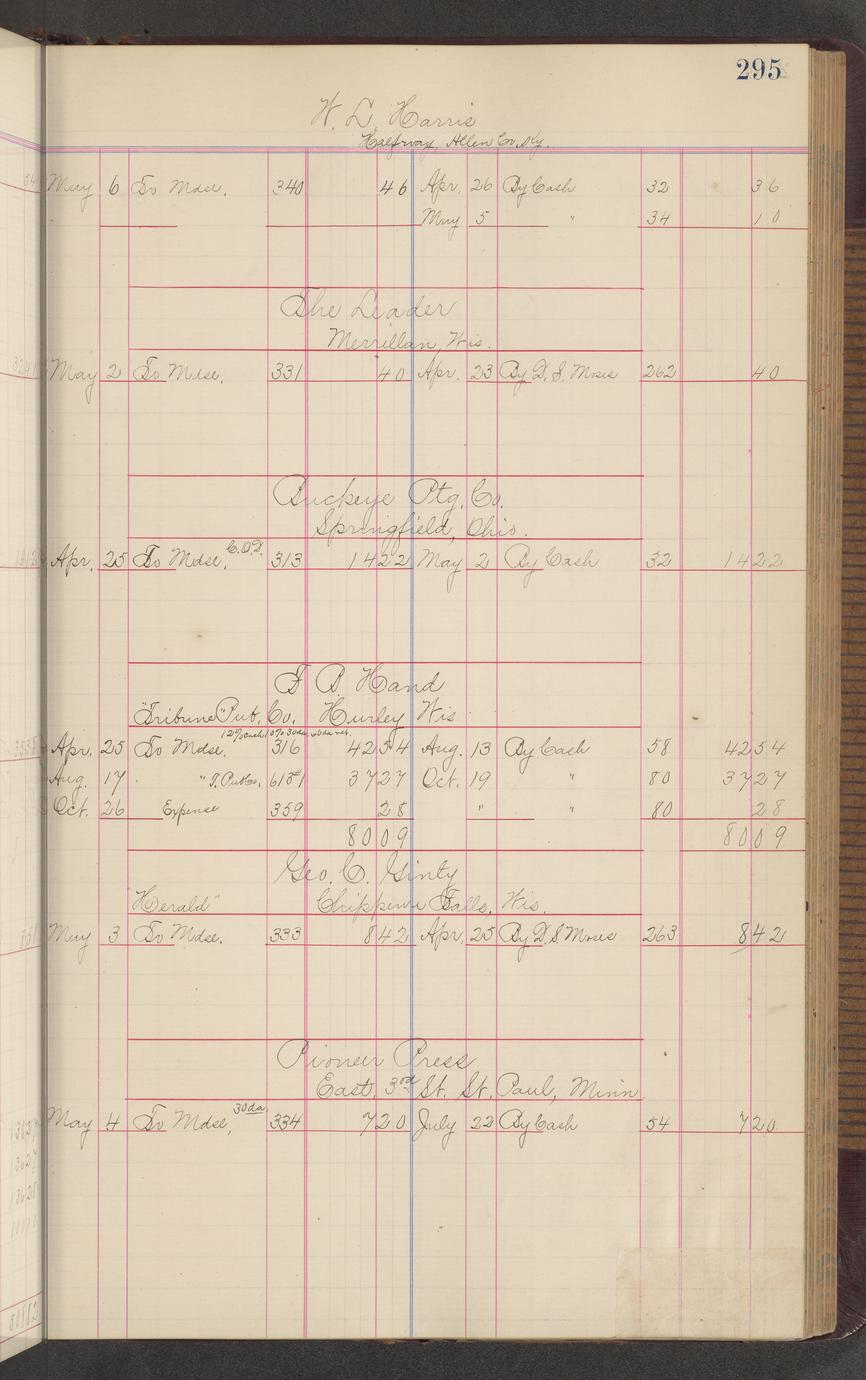 295
W. L. Harris
Halfway, Allen Co. Ky.
May 6 To Mdse. 340 46 Apr. 26 By Cash 32 36
May 5 " 34 10
The Leader
Merrillan, Wis.
May 2 To Mdse. 331 40 Apr. 23 By D. S. Moses 262 40
Buckeye Ptg. Co.
Springfield, Ohio.
Apr. 25 To Mdse. C.O.D. 313 14 22 May 2 By Cash 32 14 22
F B Hand
"Tribune" Pub. Co. Hurley Wis
12% cash 10% 30da. 60da net.
Apr. 25 To Mdse. 316 42 54 Aug. 13 By Cash 58 42 54
Aug. 17 " T. Pub Co. 37 27 Oct. 19 " 80 37 27
Oct. 26 Expense 359 28 " " 80 28
80 09 80 09
Geo. C. Ginty
"Herald" Chippewa Falls, Wis.
May 3 To Mdse. 333 8 42 Apr. 25 By D. S Moses 263 8 42
Pioneer Press
East. 3rd St. St. Paul, Minn
May 4 To Mdse, 30da 334 7 20 July 22 By Cash 54 7 20